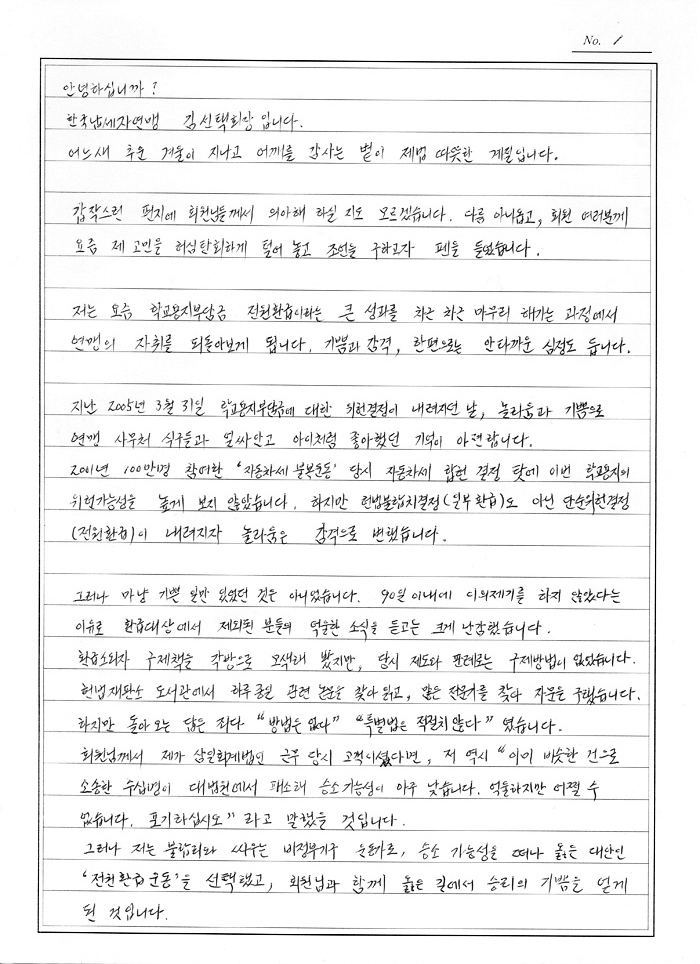 No. 1
안녕하십니까?
한국납세자연맹 김선택회장입니다.
어느새 추운 겨울이 지나고 어깨를 감싸는 볕이 제법 따뜻한 계절입니다.
갑작스런 편지에 회원님들께서 의아해 하실 지도 모르겠습니다. 다름 아니옵고, 회원 여러분께
요즘 제 고민을 허심탄회하게 털어 놓고 조언을 구하고자 펜을 들었습니다.
저는 요즘 학교용지부담금 전원환급이라는 큰 성과를 차근 차근 마무리 해가는 과정에서
연맹의 자취를 되돌아보게 됩니다. 기쁨과 감격, 한편으로는 안타까운 심정도 듭니다.
지난 2005년 3월 31일 학교용지부담금에 대한 위헌결정이 내려지던 날, 놀라움과 기쁨으로
연맹 사무처 식구들과 얼싸안고 아이처럼 좋아했던 기억이 아련합니다.
2001년 100만명 참여한 '자동차세 불복운동' 당시 자동차세 합헌 결정 탓에 이번 학교용지의
위헌가능성을 높게 보지 않았습니다. 하지만 헌법불합치결정(일부환급)도 아닌 단순위헌결정
(전원환급)이 내려지자 놀라움은 감격으로 변했습니다.
그러나 마냥 기쁜 일만 있었던 것은 아니었습니다. 90일 이내에 이의제기를 하지 않았다는
이유로 환급대상에서 제외된 분들의 억울한 소식을 듣고는 크게 난감했습니다.
환급소외자 구제책을 각방으로 모색해 봤지만, 당시 제도와 판례로는 구제방법이 없었습니다.
헌법재판소 도서관에서 하루종일 관련 논문을 찾아 읽고, 많은 전문가를 찾아 자문을 구했습니다.
하지만 돌아 오는 답은 죄다 "방법은 없다" "특별법은 적절치 않다" 였습니다.
회원님께서 제가 삼일회계법인 근무 당시 고객이셨다면, 저 역시 "이미 비슷한 건으로
소송한 수십명이 대법원에서 패소해 승소가능성이 아주 낮습니다. 억울하지만 어쩔 수
없습니다. 포기하십시오" 라고 말했을 것입니다.
그러나 저는 불합리와 싸우는 비정부기구 운동가로, 승소 가능성을 떠나 옳은 대안인
'전원환급운동'을 선택했고, 회원님과 함께 옳은 길에서 승리의 기쁨을 얻게
된 것입니다.